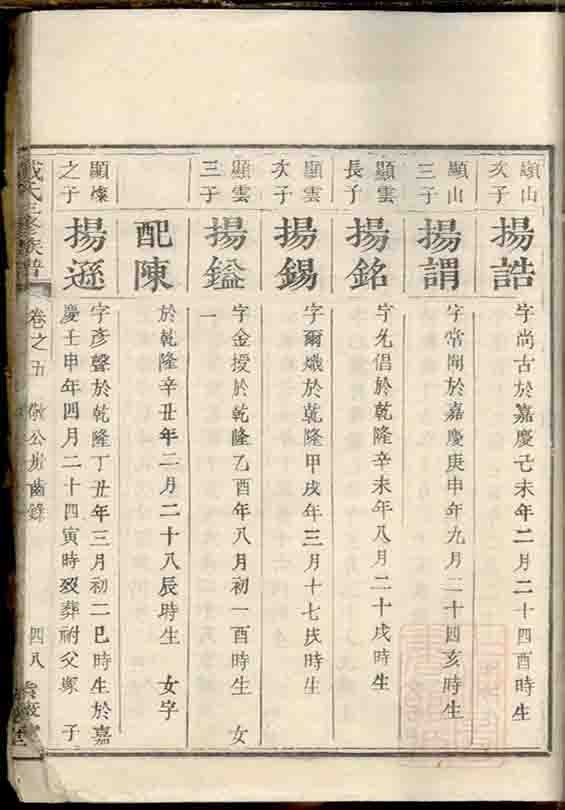 顯山
次子
揚誥
字尚古於嘉慶己未年二月二十四酉時生
顯山
三子
揚謂
字常聞於嘉慶庚申年九月二十四亥時生
顯雲
長子
揚銘
字允倡於乾隆辛未年八月二十戌時生
顯雲
次子
揚錫
字爾熾於乾隆甲戌年三月十七戌時生
顯雲
三子
揚鎰
字金授於乾隆乙酉年八月初一酉時生 女
一
配陳
於乾隆辛丑年二月二十八辰時生 女字
顯燦
之子
揚遜
字彥聲於乾隆丁丑年三月初二巳時生於嘉
慶壬申年四月二十四寅時歿葬祔父塚 子
氏三修族譜
卷之五
敬公房齒錄
四八
堂